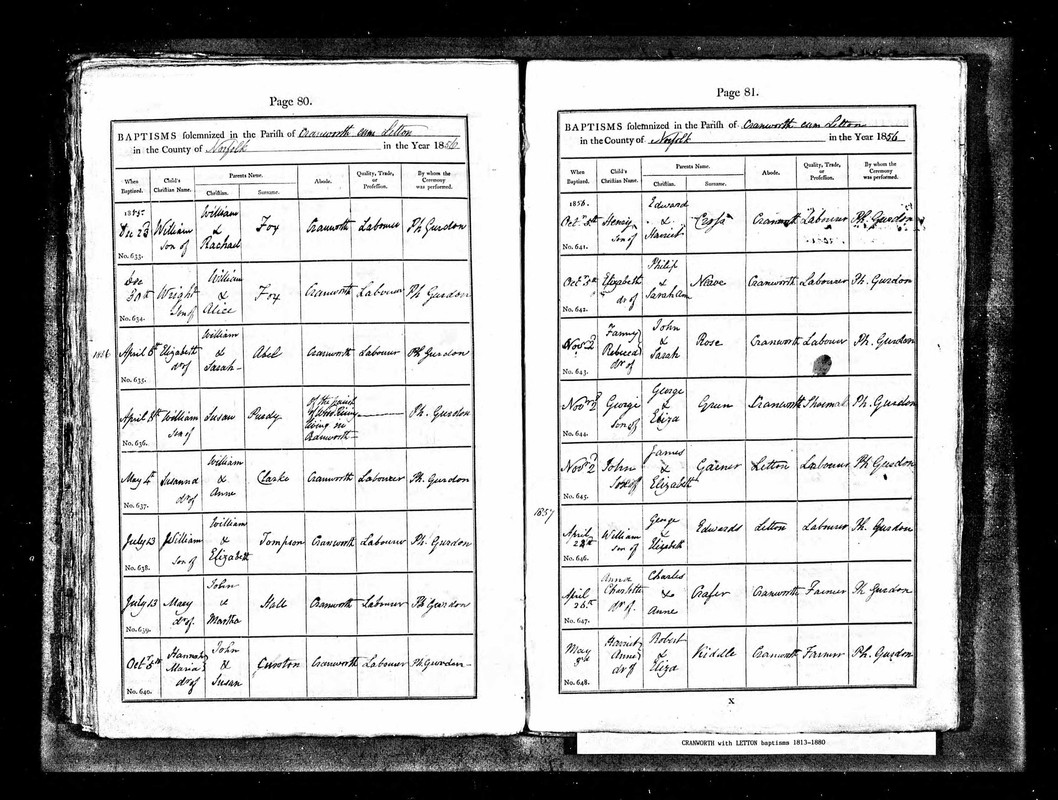 Page 80.
BAPTISMS solemnized in the Parish of Cranworth cum Letton
in the County of Norfolk in the Year 1856
When Baptized. Child's Christian Name. Parents Name. Abode. Quality, Trade, or Profession. By whom the Ceremony was performed.
Christian. Surname.
1855
Dec 23 William son of William & Rachael Fox Cranworth Labourer Ph Gurdon
No. 633.
Dec 30th Wright Son of William & Alice Fox Cranworth Labourer Ph Gurdon
No. 634.
1856
April 6th Elizabeth dr of William & Sarah Abel Cranworth Labourer Ph Gurdon
No. 635.
April 8th William son of Susan Purdy of the parish of Wood Rising living in Cranworth Ph. Gurdon
No. 636.
May 4th Susanna dr of William & Anne Clarke Cranworth Labourer Ph. Gurdon
No. 637.
July 13 William son of William & Elizabeth Tompson Cranworth Labourer Ph. Gurdon
No. 638.
July 13 Mary dr of John & Martha Hall Cranworth Labourer Ph Gurdon
No. 639.
Octr 5th Hannah Maria dr of John & Susan Curston Cranworth Labourer Ph Gurdon
No. 640.
Page 81.
BAPTISMS solemnized in the Parish of Cranworth cum Letton
in the County of Norfolk in the Year 1856
When Baptized. Child's Christian Name. Parents Name. Abode. Quality, Trade, or Profession. By whom the Ceremony was performed.
Christian. Surname.
1856.
Octr 5th Henry son of Edward & Harriet Cranworth Labourer Ph Gurdon
No. 641.
Octr 5th Elizabeth dr of Philip & Sarah Ann Neave Cranworth Labourer Ph. Gurdon
No. 642.
Novr 2d Fanny Rebecca dr of John & Sarah Rose Cranworth Labourer Ph. Gurdon
No. 643.
Novr 2d George son of George & Eliza Green Cranworth Ph. Gurdon
No. 644.
Novr 2d John Son of James & Elizabeth Garner Letton Labourer Ph Gurdon
No. 645.
1857
April William son of George & Elizabeth Edwards Letton Labourer Ph. Gurdon
No. 646.
April 26th Anna Charlotte dr of Charles & Anne Crafer Cranworth Farmer Ph Gurdon
No. 647.
May 3rd Harriet Anne dr of Robert & Eliza Riddle Cranworth Farmer Ph. Gurdon
No. 648.
X
CRANWORTH with LETTON baptisms 1813-1880